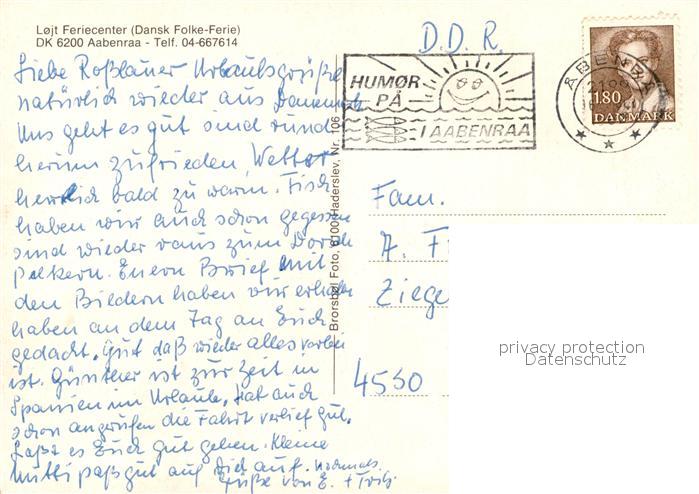 Løjt Feriecenter (Dansk Folke-Ferie)
DK 6200 Aabenraa - Telf. 04-667614
D.D.R.
HUMØR
PÅ
I AABENRAA
ÅBENRÅ
1.80
DANMARK
Liebe Roßlauer Urlaubsgrüße
natürlich wieder aus Dänemark
Uns geht es gut sind rund
herum zufrieden, Wetter
herrlich bald zu warm. Fisch
haben wir auch schon gegessen
sind wieder raus zum Dorsch
pilkern. Euern Brief mit
den Bildern haben wir erhalten
haben an dem Tag an Euch
gedacht. Gut daß wieder alles vorbei
ist. Günther ist zur Zeit in
Spanien im Urlaub. Hat auch
schon angerufen die Fahrt verlief gut.
Laßt es Euch gut gehen. Kleine
Mutti paß gut auf Dich auf. Nochmals
Grüße von E. + Fritz
Brorsbøl Foto, 6100 Haderslev, Nr. 106
Fam.
A. F
Ziege
4530
privacy protection
Datenschutz